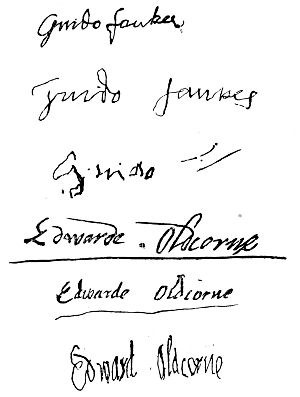 Guido faukes
Guido faukes
Guido
Edwarde Oldcorne
Edwarde Oldcorne
Edward Oldcorne